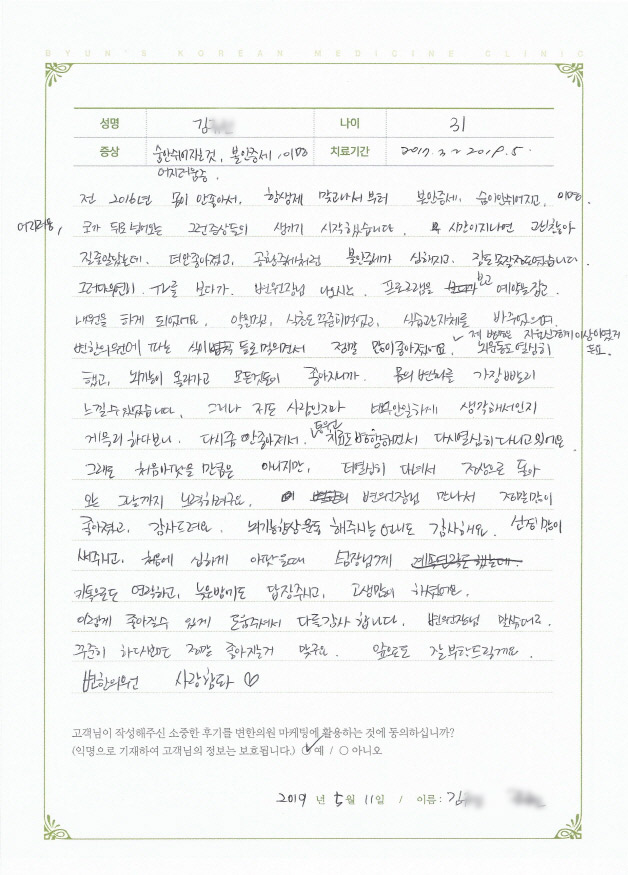 BYUN'S KOREAN MEDICINE CLINIC
성명 김 나이 31
증상 숨안쉬어지는것, 불안증세, 이명 치료기간 2017. 3 ~ 2019. 5.
어지러움증,
전 2016년 몸이 안좋아서, 항생제 먹고나서부터 불안증세, 숨이안쉬어지고, 이명,
어지러움, 뭔가 뒤로 넘어오는 그런증상들이 생기기 시작했습니다. 시간이지나면 괜찮아
질줄알았는데. 더안좋아졌고, 공황증세처럼 불안증세가 심해지고. 잠도못잘정도였습니다.
그러다우연히. TV를 보다가. 변원장님 나오시는. 프로그램을 보고 예약을잡고.
내원을 하게 되었어요. 약을먹고, 침치료도꾸준히받았고, 식습관자체를 바꾸었으며.
변한의원에 파는 식이 들로먹으면서 정말 많이좋아졌어요. 제 병명은 자율신경계이상이였거든요.
뇌운동도열심히
했고, 뇌기능이 올라가고 모든것들이 좋아지니까. 몸의변화를 가장빨리
느낄수있었습니다. 그러나 저도 사람인지라 안일하게 생각해서인지
게을리 하다보니. 다시좀 안좋아져서. 통원하고 치료도병행하면서 다시열심히 다니고있어요.
그래도 처음아팠을 만큼은 아니지만, 더열심히 다녀서 정상으로 돌아
오는 그날까지 노력하려구요. 변원장님 만나서 정말많이
좋아졌고, 감사드려요. 뇌기능향상운동 해주시는언니도 감사해요. 신경많이
써주시고, 처음에 심하게 아팠을때 팀장님께 계속연락도했는데.
카톡으로도 연락하고, 늦은밤에도 답장주시고, 고생많이 하셨어요.
이렇게 좋아질수 있게 도움주셔서 다들감사합니다. 변원장님 말씀대로.
꾸준히 하다보면 정말 좋아지는거 맞구요. 앞으로도 잘부탁드릴게요.
변한의원 사랑합니다 ♡
고객님이 작성해주신 소중한 후기를 변한의원 마케팅에 활용하는 것에 동의하십니까?
(익명으로 기재하여 고객님의 정보는 보호됩니다.) ○ 예 / ○ 아니오
2019 년 5월 11일 / 이름 : 김